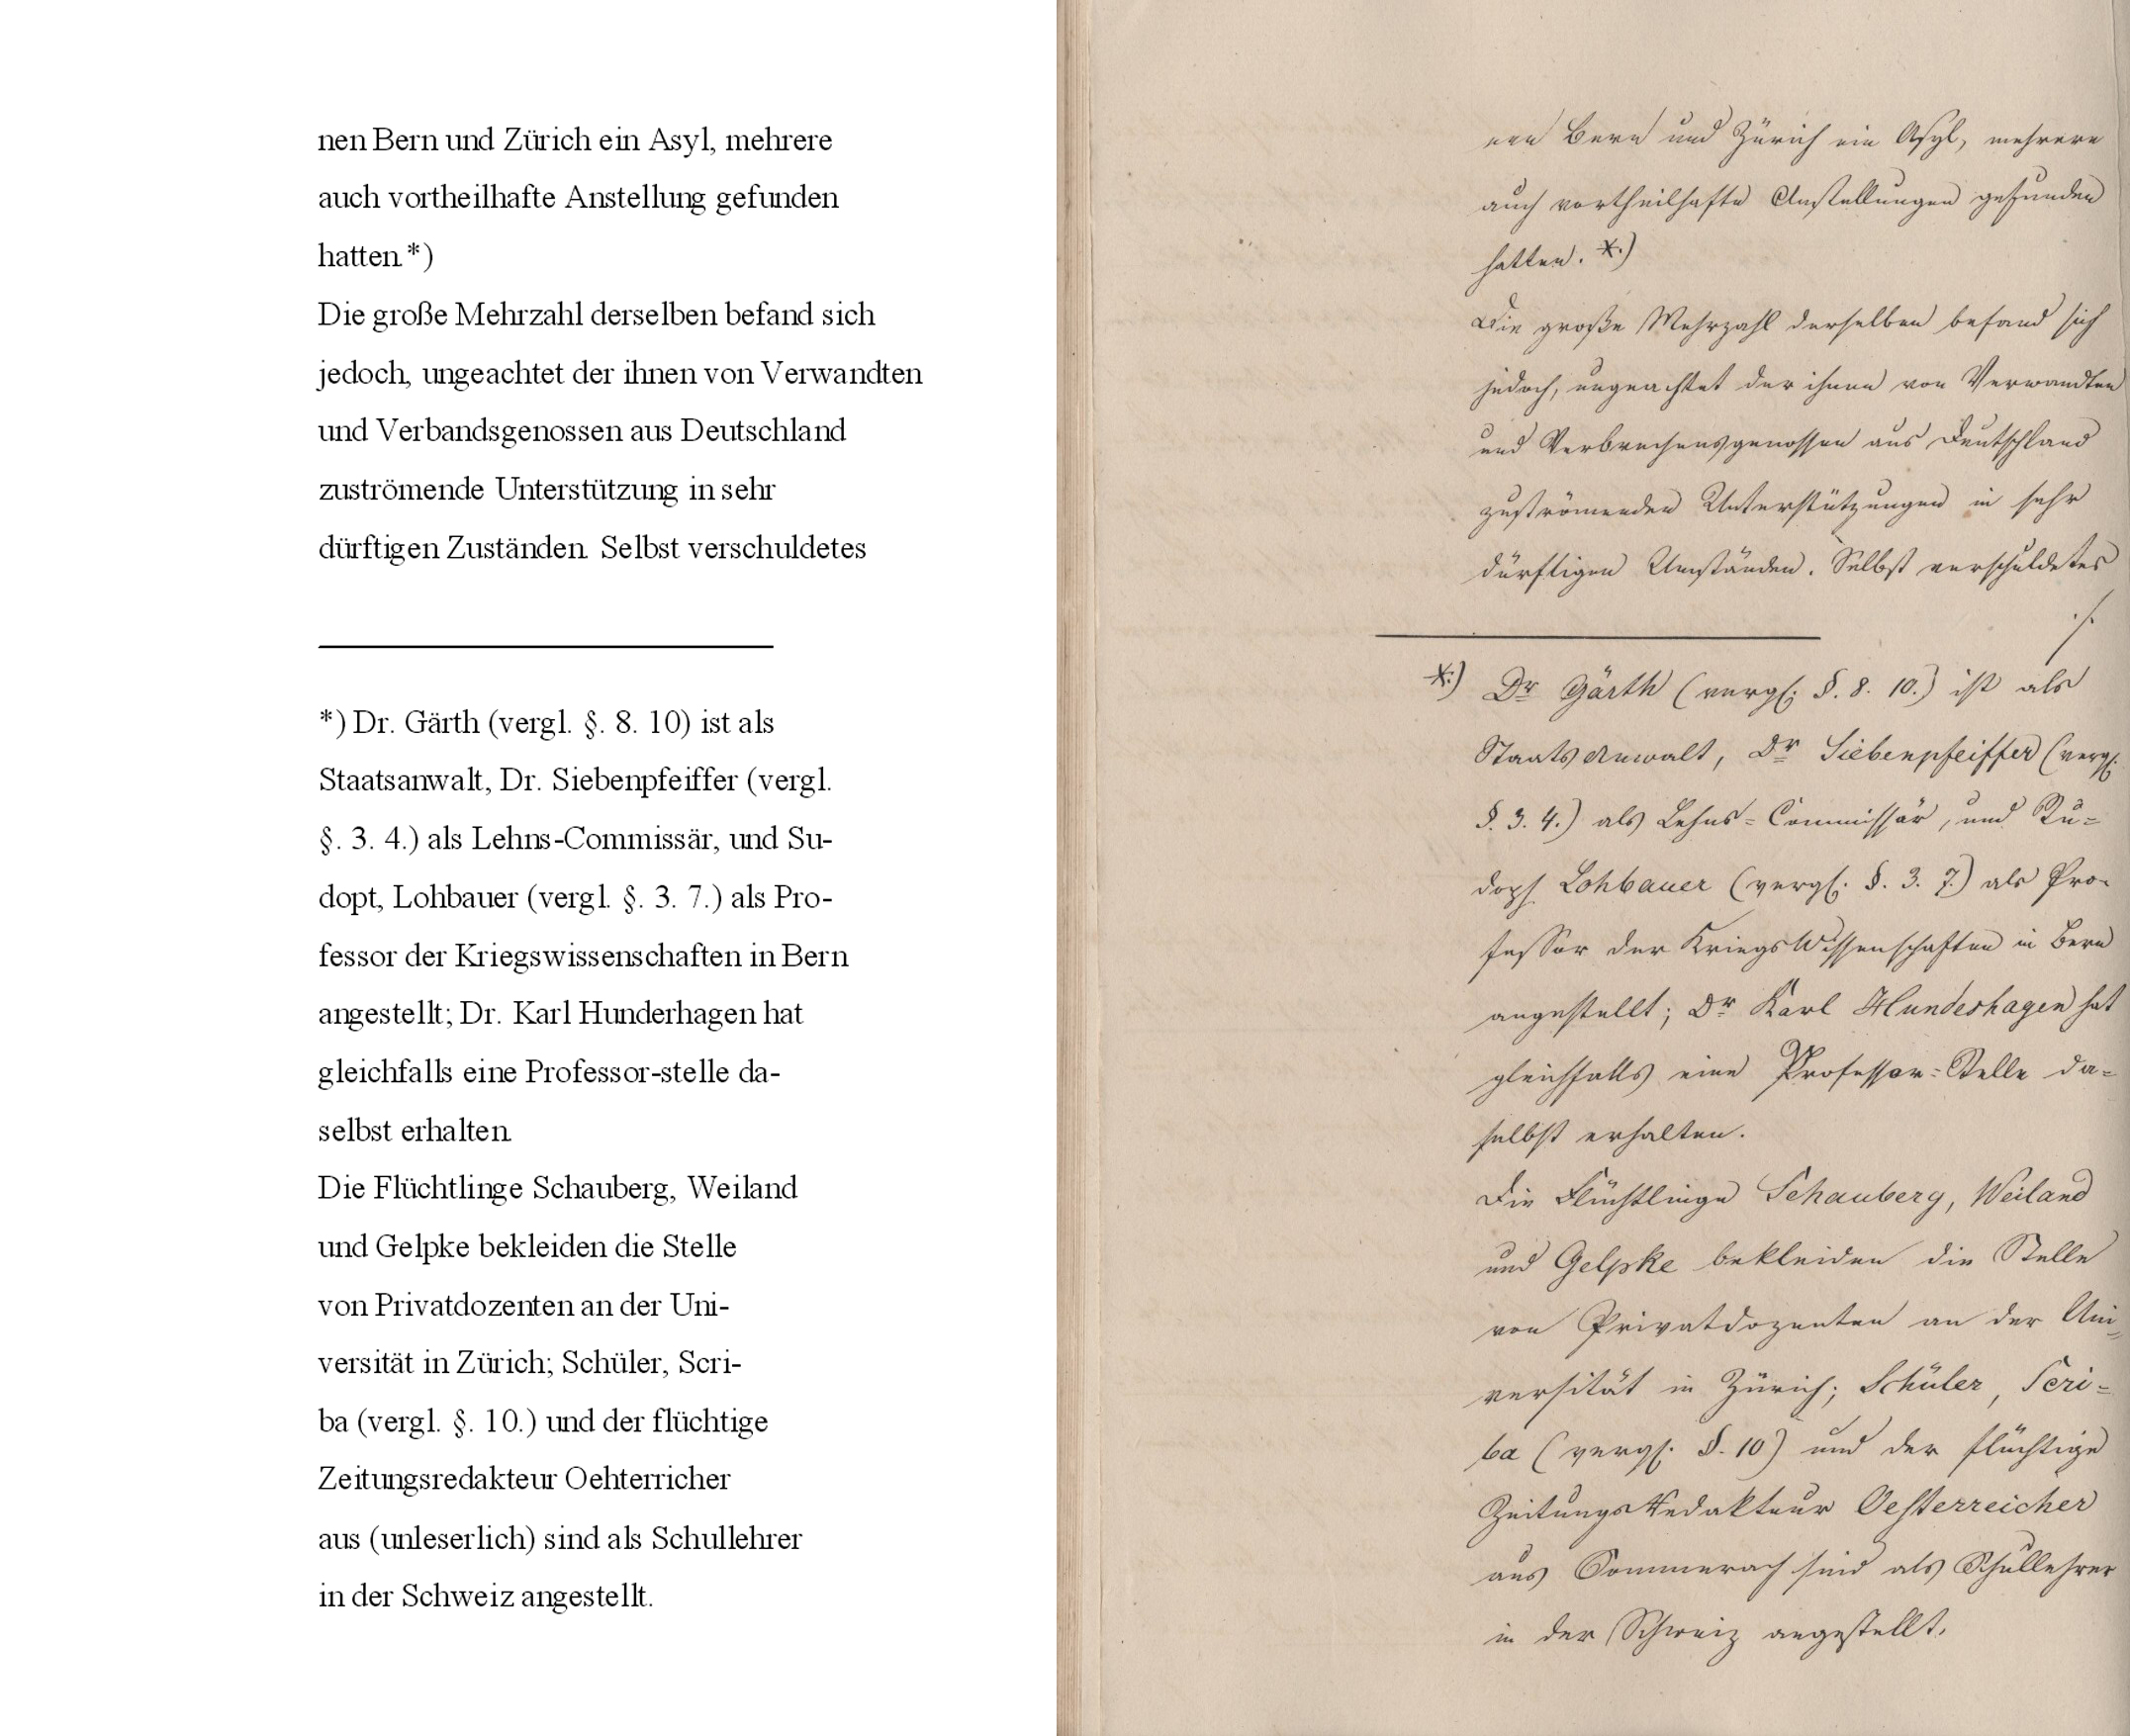 nen Bern und Zürich ein Asyl, mehrere
auch vortheilhafte Anstellung gefunden
hatten.*)
Die große Mehrzahl derselben befand sich
jedoch, ungeachtet der ihnen von Verwandten
und Verbandsgenossen aus Deutschland
zuströmende Unterstützung in sehr
dürftigen Zuständen. Selbst verschuldetes
*) Dr. Gärth (vergl. §. 8. 10) ist als
Staatsanwalt, Dr. Siebenpfeiffer (vergl.
§. 3. 4.) als Lehns-Commissär, und Su-
dopt, Lohbauer (vergl. §. 3. 7.) als Pro-
fessor der Kriegswissenschaften in Bern
angestellt; Dr. Karl Hunderhagen hat
gleichfalls eine Professor-stelle da-
selbst erhalten.
Die Flüchtlinge Schauberg, Weiland
und Gelpke bekleiden die Stelle
von Privatdozenten an der Uni-
versität in Zürich; Schüler, Scri-
ba (vergl. §. 10.) und der flüchtige
Zeitungsredakteur Oehterricher
aus (unleserlich) sind als Schullehrer
in der Schweiz angestellt.
nen Bern und Zürich ein Asyl, mehrere
auch vortheilhafte Anstellungen gefunden
hatten. *.)
Die große Mehrzahl derselben befand sich
jedoch, ungeachtet der ihnen von Verwandten
und Verbrechensgenossen aus Deutschland
zuströmenden Unterstützungen in sehr
dürftigen Umständen. Selbst verschuldetes
./.
*.) Dr Gärth (vergl. §. 8. 10.) ist als
Staatsanwalt, Dr Siebenpfeiffer (vergl.
§. 3. 4.) als Lehns=Commissär, und Ru=
doph Lohbauer (vergl. §. 3. 7.) als Pro-
fessor der KriegsWissenschaften in Bern
angestellt; Dr Karl Hundeshagen hat
gleichfalls eine Professor=Stelle da=
selbst erhalten.
Die Flüchtlinge Schauberg, Weiland
und Gelpke bekleiden die Stelle
von Privatdozenten an der Uni=
versität in Zürich; Schüler, Scri=
ba (vergl. §. 10) und der flüchtige
ZeitungsRedakteur Oesterreicher
aus Sommerach sind als Schullehrer
in der Schweiz angestellt.